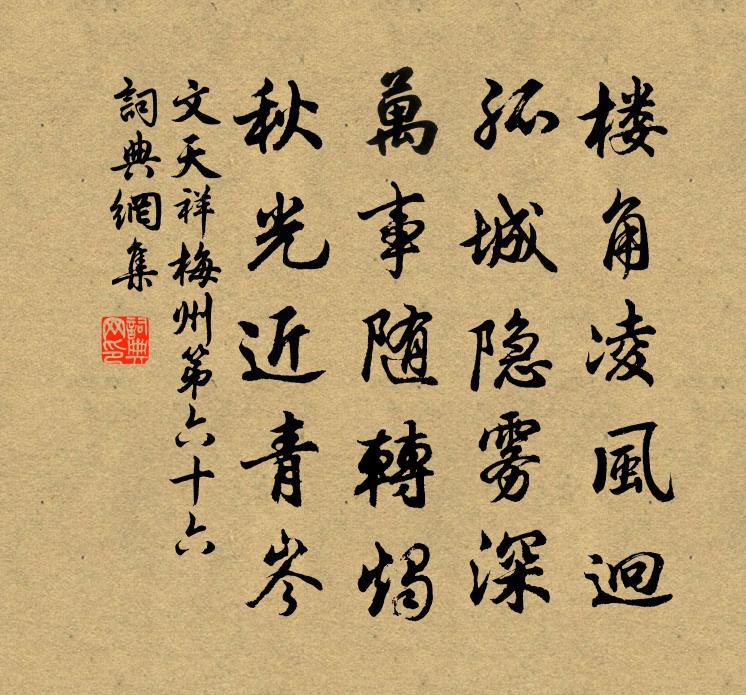 楼角凌風迥
孤城隐雾深
萬事随轉燭
秋光近青岑
文天祥梅州第六十六
詞典網集
詞典网印